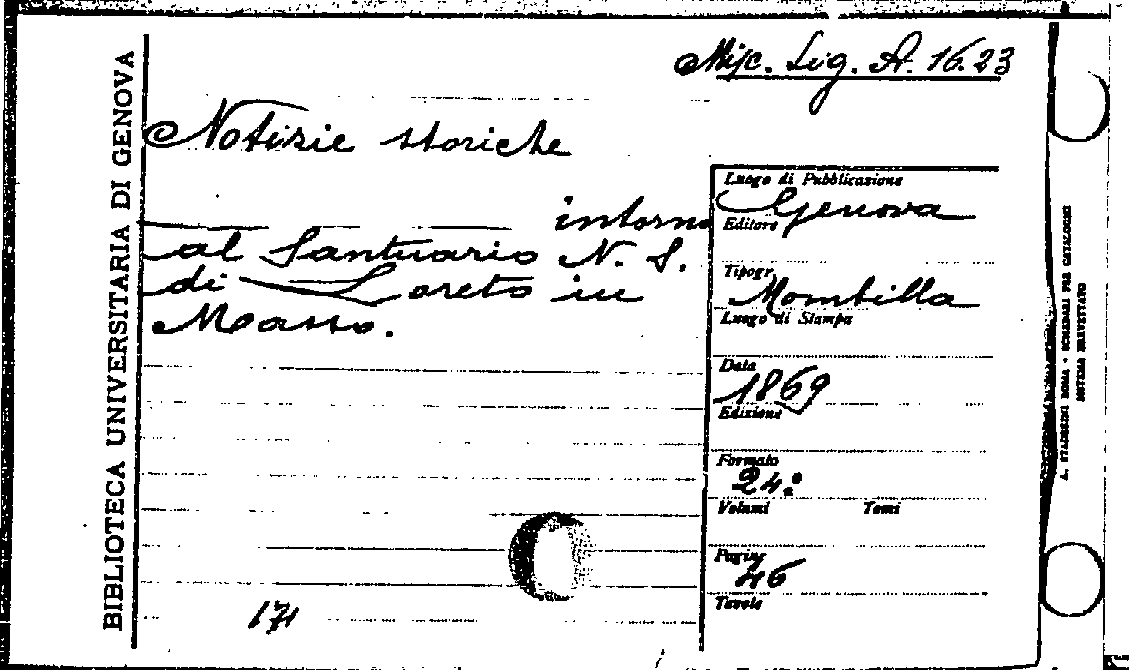 Misc. Lig. A. 16.23
BIBLIOTECA UNIVERSITARIA DI GENOVA
Notizie storiche
intorno
al Santuario N. S.
di Loreto in
Masso.
Luogo di Pubblicazione
Genova
Editore
Tipogr.
Mombilla
Luogo di Stampa
Data
1869
Edizione
Formato
24.º
Volumi Tomi
Pagine
46
Tavole
171
A. STADERINI ROMA • SCHEDARI PER CATALOGHI
SISTEMA BREVETTATO